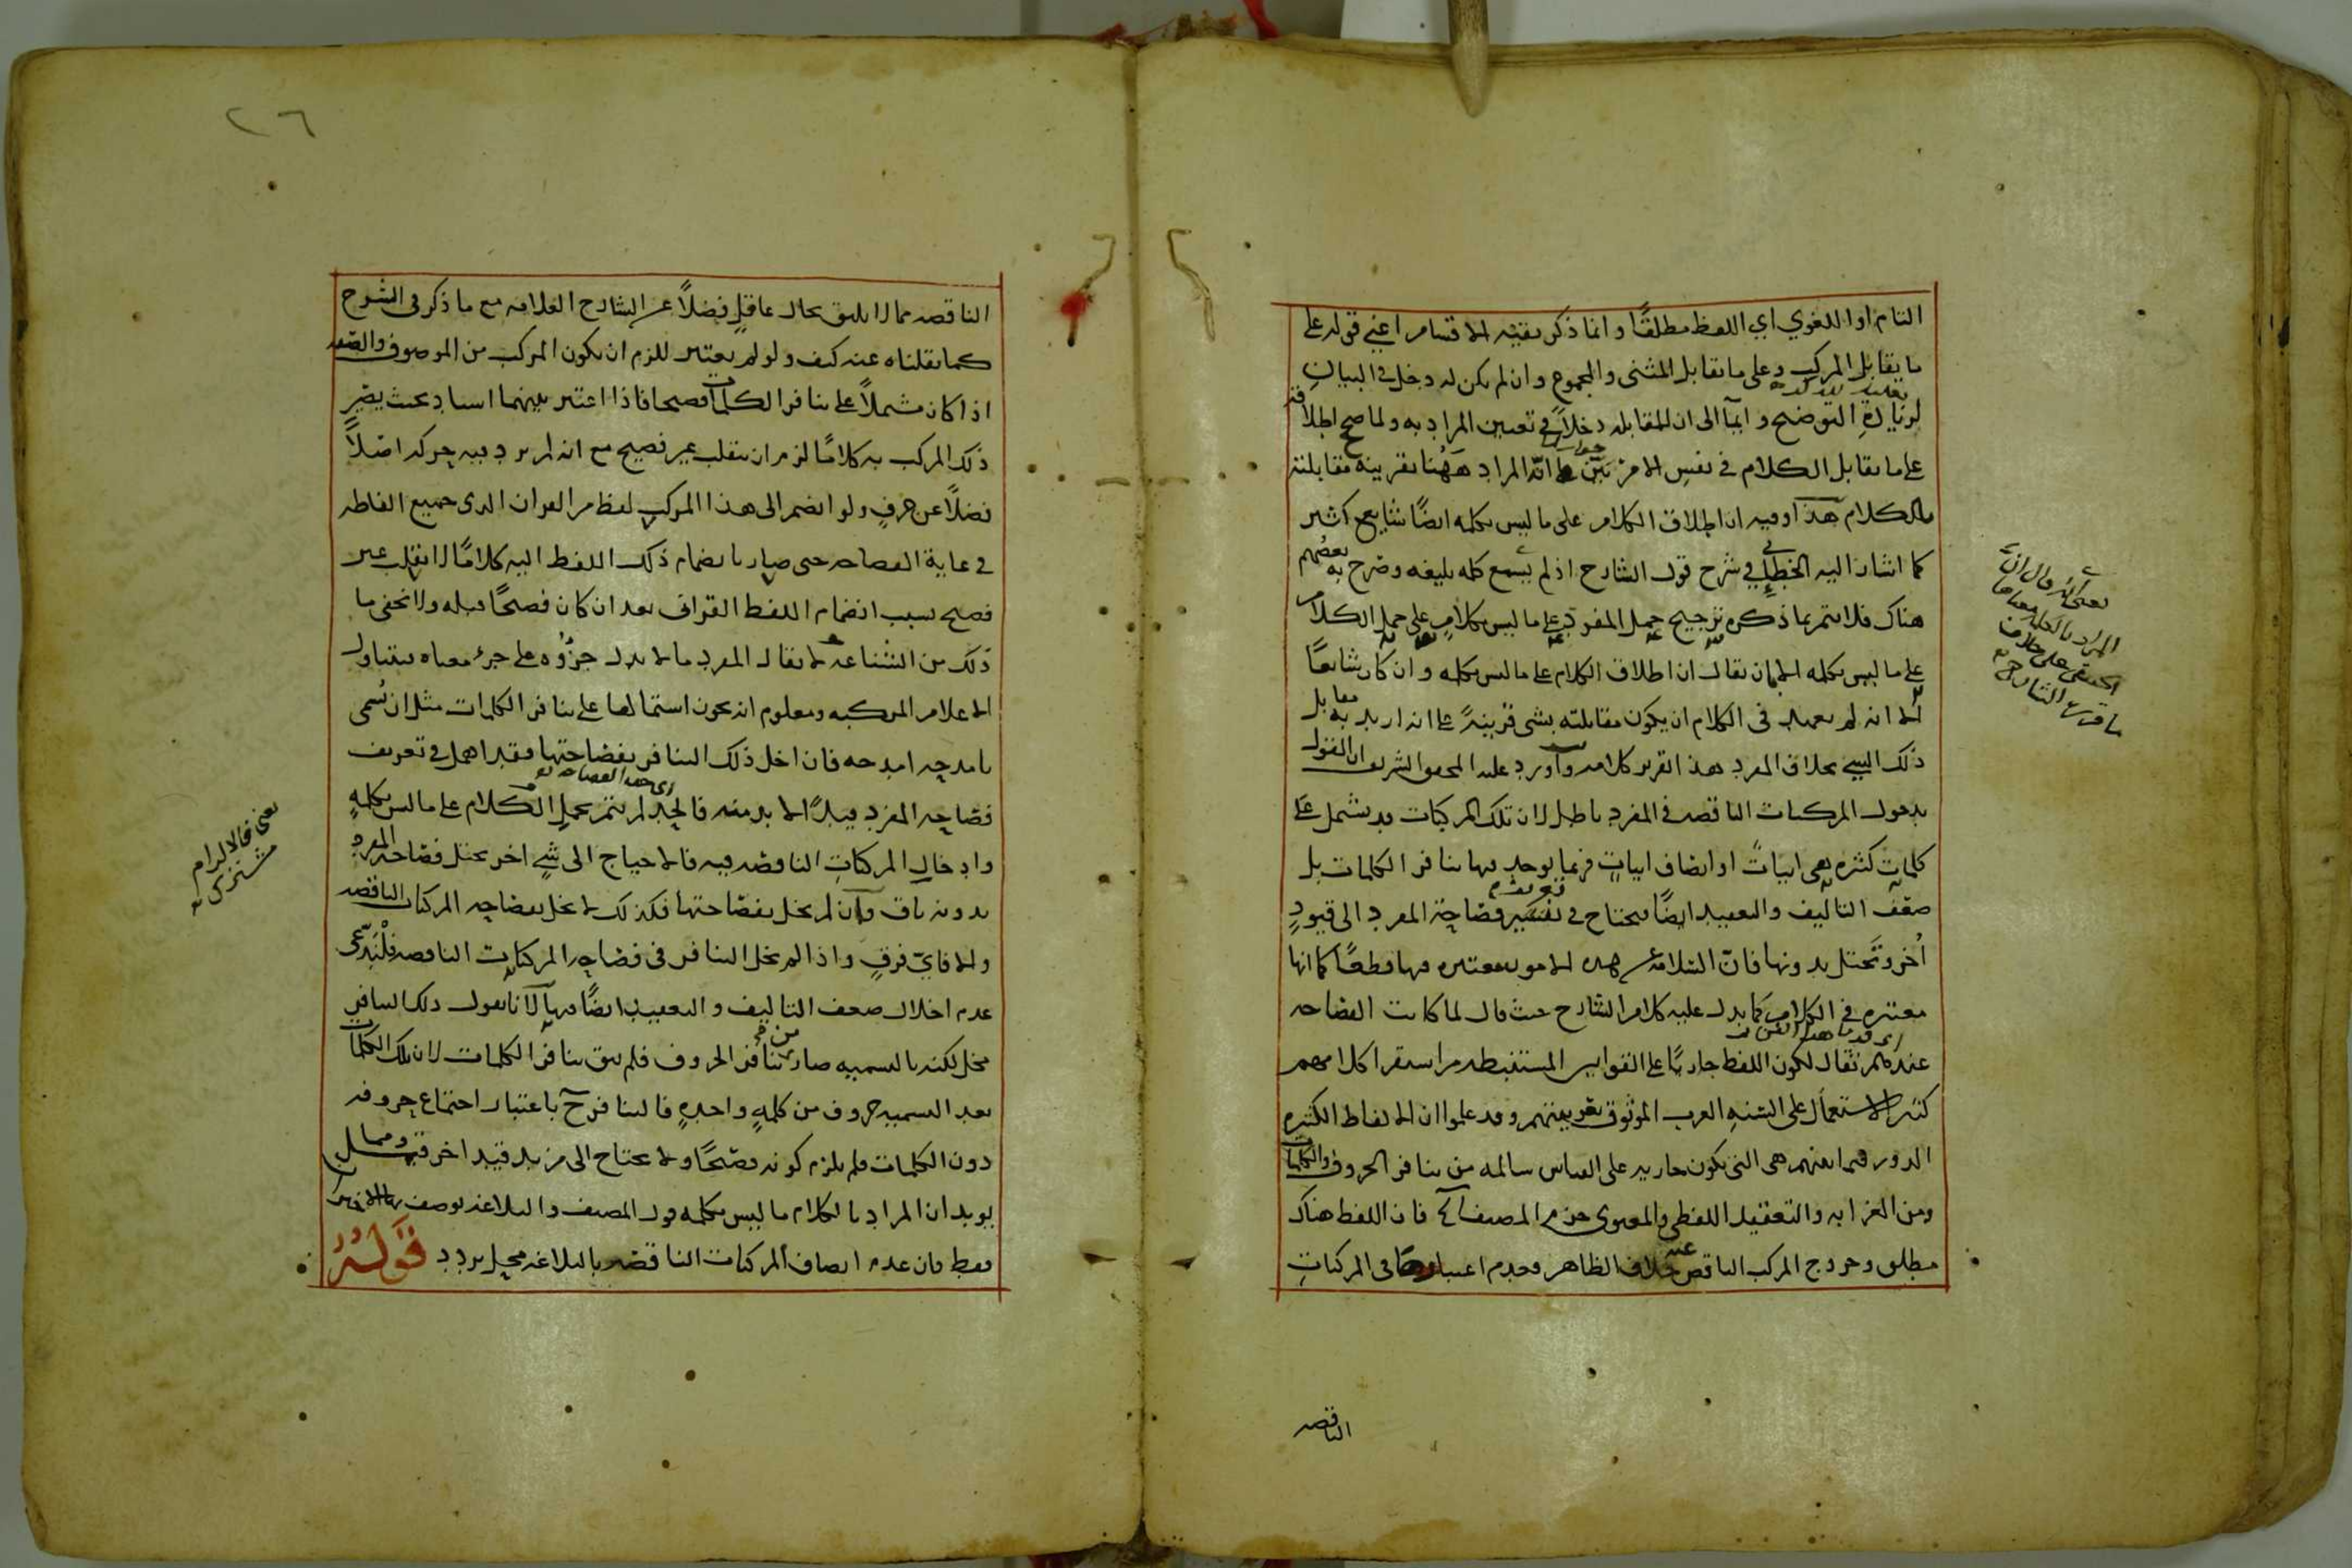 التام او اللغوي اي اللفظ مطلقًا وانما ذكر بقية الاقسام اعني قوله على
ما يقابل المركب وعلى ما يقابل المثنى والمجموع وان لم يكن له دخل في البيان
لزيادة التوضيح وايمآ الى ان للمقابله دخلاً في تعيين المراد به ولما صح اطلاقه
على ما يقابل الكلام في نفس الامر تبين انه المراد ههنا بقرينة مقابلته
بالكلام هذا وفيه ان اطلاق الكلام على ما ليس بكلمه ايضًا شايع كثير
كما اشار اليه الخطائي في شرح قول الشارح اذ لم يسمع كلمه بليغه وصرح به بعضهم
هناك فلا يتم بما ذكره ترجيح حمل المفرد على ما ليس بكلام على حمل الكلام
على ما ليس بكلمه الا ان يقال ان اطلاق الكلام على ما ليس بكلمه وان كان شايعًا
الا انه لم يعهد في الكلام ان يكون مقابلته بشي قرينةً على انه اريد به مقابل
ذلك الشي بخلاف المفرد هذا تقرير كلامه واورد عليه المحقق الشريف ان القول
بدخول المركبات الناقصه في المفرد باطل لان تلك المركبات قد يشتمل على
كلمات كثيره بعد ابيات او انصاف ابيات فربما يوجد فيها تنافر الكلمات بل
ضعف التاليف والتعقيد ايضًا فيحتاج في تفسير فصاحة المفرد الى قيودٍ
اُخر وتختل بدونها فان السلامة عن هذه الامور معتبره فيها قطعًا كما انها
معتبره في الكلام كما يدل عليه كلام الشارح حيث قال لما كانت الفصاحه
عندهم تقال لكون اللفظ جاريًا على القوانين المستنبطه من استقرا كلامهم
كثير الاستعمال على السنه العرب الموثوق بعربيتهم وقد علموا ان الالفاظ الكثيره
الدور فيما بينهم هى التي تكون جاريه على القياس سالمه من تنافر الحروف والكلمات
ومن الغرابه والتعقيد اللفظي والمعنوى جزم المصنف الخ فان اللفظ هناك
مطلق وخروج المركب الناقص عنه خلاف الظاهر وعدم اعتبارها في المركبات
يعني انه قال ان
المراد بالكلمه معناها
الحقيقي على خلاف
ما قرره الشارح
الناقصه
٢٦
الناقصه مما لا يليق بحال عاقلٍ فضلاً عن الشارح العلامه مع ما ذكر في الشرح
كما نقلناه عنه كيف ولو لم يعتبر للزم ان يكون المركب من الموصوف والصفه
اذا كان مشتملاً على تنافر الكلمات فصيحا فاذا اعتبر بينهما اسناد بحيث يصير
ذلك المركب به كلامًا لزم ان ينقلب غير فصيح مع انه لم يزد فيه حركه اصلاً
فضلاً عن حرفٍ ولو انضم الى هذا المركب لفظ من القران الذى جميع الفاظه
في غاية الفصاحه حتى صار بانضمام ذلك اللفظ اليه كلامًا لانقلب غير
فصيح بسبب انضمام اللفظ القرانى بعد ان كان فصيحًا قبله ولا يخفى ما
ذلك من الشناعه لا يقال المفرد ما لا يدل جزؤه على جزء معناه فيتناول
الاعلام المركبه ومعلوم انه يجوز اشتمالها على تنافر الكلمات مثل ان نُسمى
بامدحه امدحه فان اخل ذلك التنافر بفصاحتها فقد اهمل في تعريف
فصاحة المفرد قيدًا لا بد منه فالجد لم يتم بحمل الكلام على ما ليس بكلمةٍ
وادخال المركبات الناقصه فيه فالاحتياج الى شيٍ اخر يختل فصاحة المفرد
بدونه باق وان لم يخل بفصاحتها فكذلك لا يخل بفصاحة المركبات الناقصه
والا فايّ فرقٍ واذا لم يخل التنافر في فصاحة المركبات الناقصه فليدّعى
عدم اخلال ضعف التاليف والتعقيد ايضًا فيها لانا نقول ذلك التنافر
مخل لكنه بالتسميه صار من تنافر الحروف فلم يبق تنافر الكلمات لان تلك الكلمات
بعد التسميه حروف من كلمةٍ واحدةٍ فالتنافر ح باعتبار اجتماع حروفه
دون الكلمات فلم يلزم كونه فصيحًا ولا يحتاج الى مزيد قيد اخر فيه ومما
يويد ان المراد بالكلام ما ليس بكلمه قول المصنف والبلاغه يوصف بها الاخيران
فقط فان عدم اتصاف المركبات الناقصه بالبلاغه محل تردد قَوْلُهُ
يعني فالالزام
مشترك